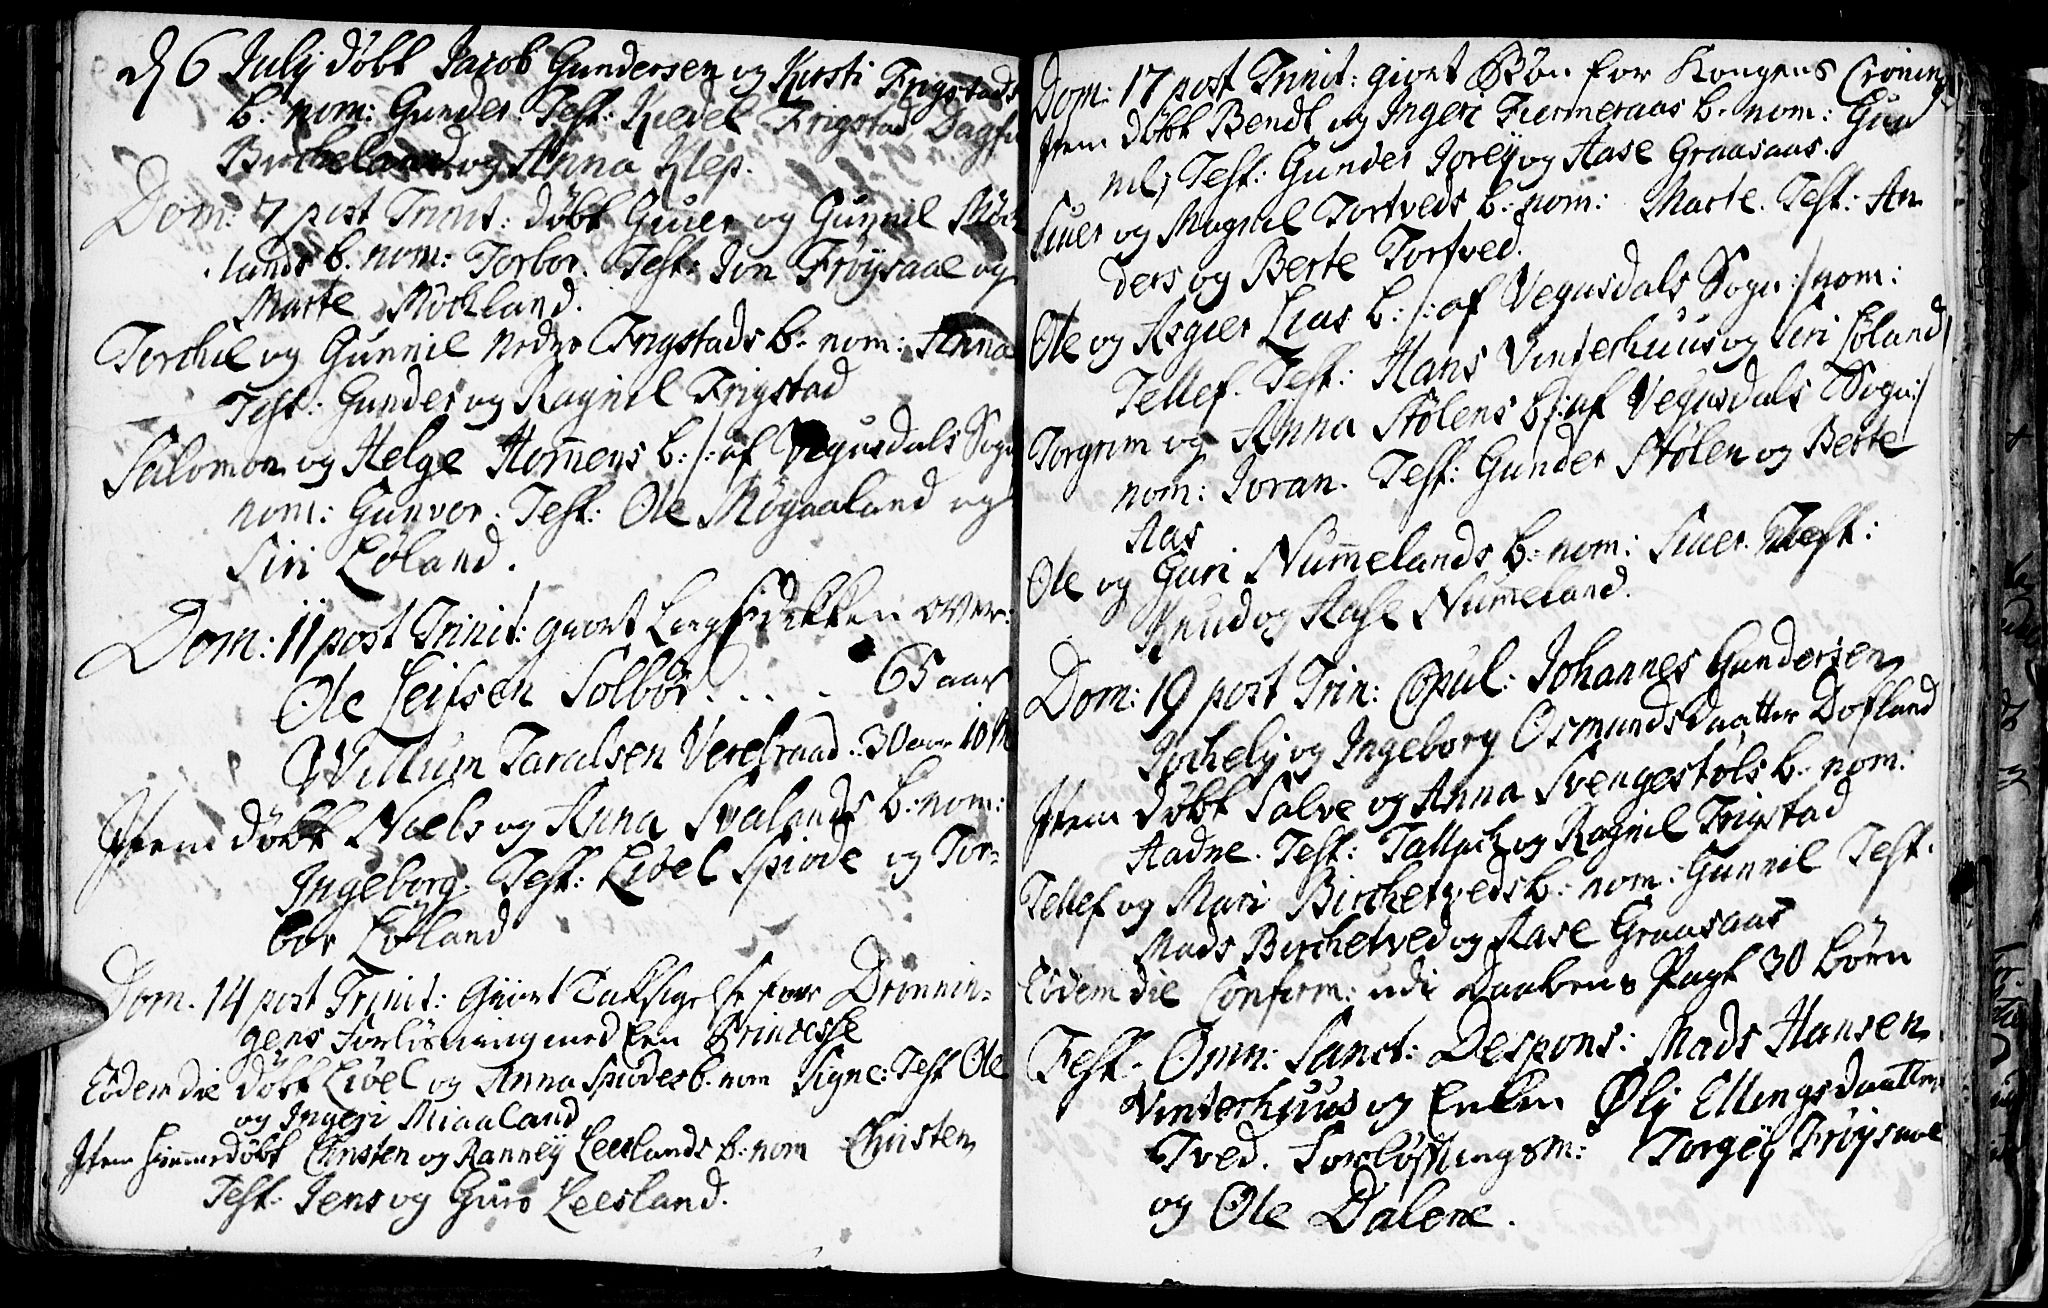 d 6 July döbt Jacob Gundersen og Kirsti Frigstads
b: nom: Gunder Test: Kiedel Frigstad Dagfin
Bircheland og Anna Klep.
Dom: 7 post Trinit: döbt Giuer og Gunnil Möch
lands b. nom: Torbor. Test: Jon Fröysaae og
Marte Möchland.
Torchil og Gunnil Nedre Frigstads b: nom: Anna
Test: Gunder og Ragnil Frigstad
Salomon og Helge Hom̄ens b: /: af Vegusdals Sogn
nom: Gunvor. Test: Ole Mögaaland og
Siri Löland.
Dom: 11 post Trinit: giort Liigprædikken over:
Ole Leifsen Solbör. . . . 65 aar
Willum Taralsen Verelsraad.. 30 aar 10 M
Item döbt Niels og Anna Svalands b: nom:
Ingeborg. Test: Livel Spiode og Tor-
bor Löland
Dom. 14 post Trinit: Giort Taksigelse for Dronnin-
gens Forlösning med Een Prindsesse
Eodem die döbt Livel og Anna Spiodes b. nom Signe: Test Ole
og Ingeri Miaaland
Item Hiemmedöbt Christen og Ranney Leeslands b: nom Christen
Test: Jens og Guro Leesland.
Dom: 17 post Trinit: giort Bön for Kongens Croning
Item döbt Bendt og Ingeri Furmeraas b. nom: Gun
nil; Test: Gunder Jorey og Aase Graasaas.
Siuer og Magnil Tortveds b: nom: Marte. Test: An
ders og Berte Tortved.
Ole og Asgier Lias b: /: af Vegusdals Sogn :/ nom:
Tellef. Test: Hans Vinterhuus og Siri Löland
Torgrim og Anna Stölens b /: af Vegusdals Sogn :/
nom: Joran. Test: Gunder Stölen og Berte
Aas
Ole og Guri Num̄elands b: nom: Siuer. Test:
Knud og Aase Num̄eland.
Dom: 19 post Trin: Copul: Johannes Gundersen
Jochely og Ingeborg Osmundsdaatter Dofland
Item döbt Salve og Anna Svengestöls b. nom:
Aadne. Test: Tallach og Ragnil Frigstad
Tellef og Mari Birchetveds b: nom: Gunnil Test.
Mads Birchetved og Aase Graasaas
Eodem die Confirm: udi Daabens Pagt 30 börn
Fest. Omn: Sanct: Despons: Mads Hansen
Vinterhuus og Enken Øly Ellingsdaatter
Tved. Forlöftningsm: Torgey Fröysaae
og Ole Dalene.